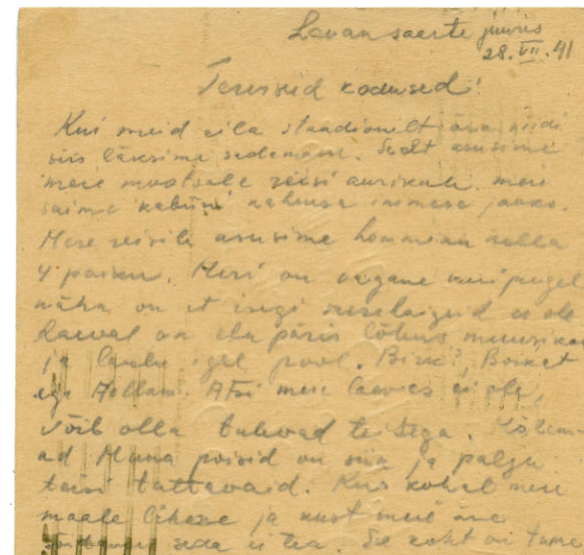 Lavansaarte juures
28. VII. 41
Tervised kodused!
Kui meid eila staadionilt ära viidi
siis läksime sadamasse. Sealt asusime
meie reisi aurikule, meie
saime kabiini kaheksa inimese jaoks.
Mere reisile asusime hommiku kella
4 paiku. Meri on vagane kui peegel
näha on et isegi ei ole
Laeval on elu päris lõbus muusika
ja laulu igal pool. Birk?, Boiket
ega Hollam. Atsi meie laevas ei ole,
võib olla tulevad teisega. Mõlem-
ad Muna poisid on siin ja palju
teisi tuttavaid. Kus kohal meie
maale läheme ja kust meie
seda ei tea. See koht on tume